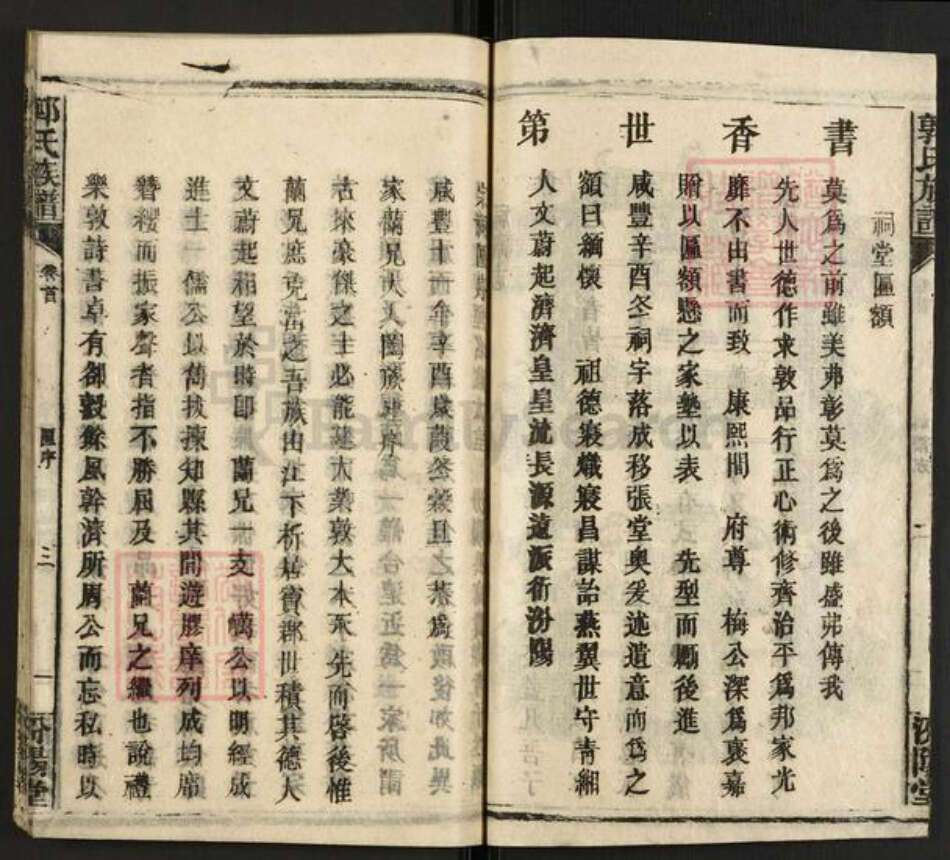 郭氏族譜
汾陽堂
祠堂匾額
書香世第
莫爲之前雖美弗彰莫爲之後雖盛弗傳我
先人世德作求敦品行正心術修齊治平爲邦家光
靡不由書而致 康熙間 府尊 梅公深爲褒嘉
贈以匾額懸之家塾以表 先型而勵後進
咸豐辛酉冬祠宇落成移張堂奥爰述遺意而爲之
額曰緬懷 祖德寢熾寢昌謀詒燕翼世守靑緗
人文蔚起濟濟皇皇流長源遠派衍汾陽
咸豐十一年辛酉歲葭
家蘭兄大人闔族
古來豪傑之士必能基大業敦大本承先而啓後惟
蘭兄庶克當之吾族由江下析居寶郡世積其德人
文蔚起相望於時卽 蘭兄一支好 公以明經成
進士 儒公以薦拔揀知縣其間遊膠庠列成均廁
簪纓而振家聲者指不勝屈及 蘭兄之繼也說禮
樂敦詩書卓有郤縠餘風幹濟所周公而忘私時以
郭氏族譜
卷首
匾序
三
汾陽堂
FamilySearch